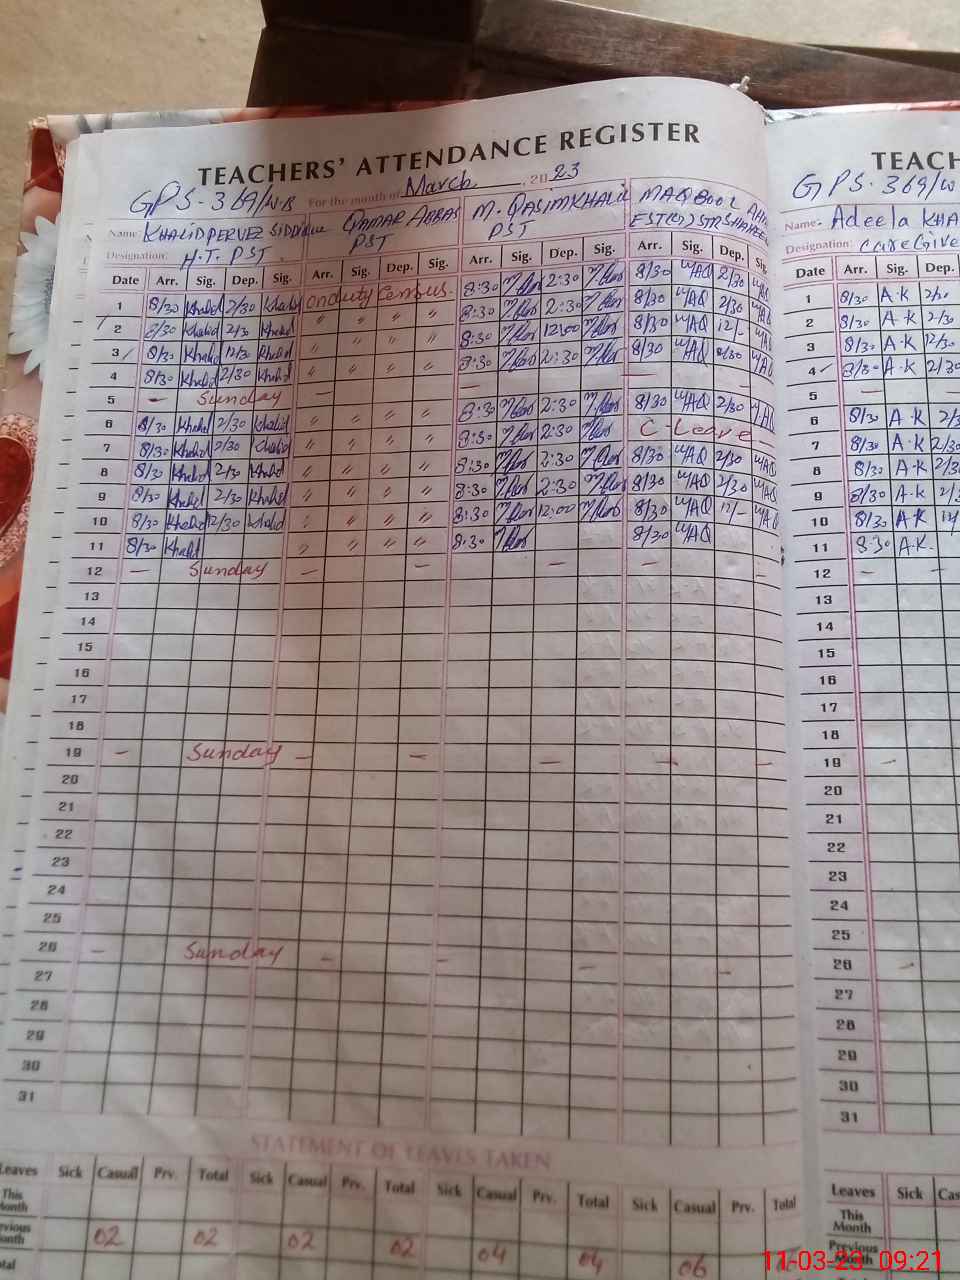 TEACHERS' ATTENDANCE REGISTER
GPS-369/W-B For the month of March, 2023
Name: KHALID PERVEZ SIDDIQUE QAMAR ABBAS M. QASIM KHALIL MAQBOOL
Designation: H.T. PST PST PST EST
Date Arr. Sig. Dep. Sig. Arr. Sig. Dep. Sig. Arr. Sig. Dep. Sig. Arr. Sig. Dep. Sig.
1 8/30 Khalid 2/30 Khalid on duty Census. 8:30 2:30 8/30 MAQ 2/30 MAQ
2 8/30 Khalid 2/30 Khalid " " " " 8:30 2:30 8/30 MAQ 2/30 MAQ
3 8/30 Khalid 12/30 Khalid " " " " 8:30 12:00 8/30 MAQ 12/- MAQ
4 8/30 Khalid 2/30 Khalid " " " " 8:30 2:30 8/30 MAQ MAQ
5 — Sunday — — — —
6 8/30 Khalid 2/30 Khalid " " " " 8:30 2:30 8/30 MAQ 2/30 MAQ
7 8/30 Khalid 2/30 Khalid " " " " 8:30 2:30 C-Leave —
8 8/30 Khalid 2/30 Khalid " " " " 8:30 2:30 8/30 MAQ 2/30 MAQ
9 8/30 Khalid 2/30 Khalid " " " " 8:30 2:30 8/30 MAQ 2/30 MAQ
10 8/30 Khalid 12/30 Khalid " " " " 8:30 12:00 8/30 MAQ 12/- MAQ
11 8/30 Khalid " " " " 8:30 8/30 MAQ
12 — Sunday — — — — —
13
14
15
16
17
18
19 — Sunday — — — — —
20
21
22
23
24
25
26 — Sunday — — — —
27
28
29
30
31
STATEMENT OF LEAVES TAKEN
Leaves Sick Casual Prv. Total Sick Casual Prv. Total Sick Casual Prv. Total Sick Casual Prv. Total
This Month
Previous Month 02 02 02 02 04 04 06
Total
TEACH
GPS-369/W
Name: Adeela KHA
Designation: CareGive
Date Arr. Sig. Dep.
1 8/30 A.K 2/30
2 8/30 A.K 2/30
3 8/30 A.K 12/30
4 8/30 A.K 2/30
5 —
6 8/30 A.K
7 8/30 A.K 2/30
8 8/30 A.K
9 8/30 A.K
10 8/30 A.K
11 8:30 A.K.
12 — —
13
14
15
16
17
18
19 —
20
21
22
23
24
25
26 —
27
28
29
30
31
Leaves Sick Cas
This Month
Previous Month
11-03-23 09:21